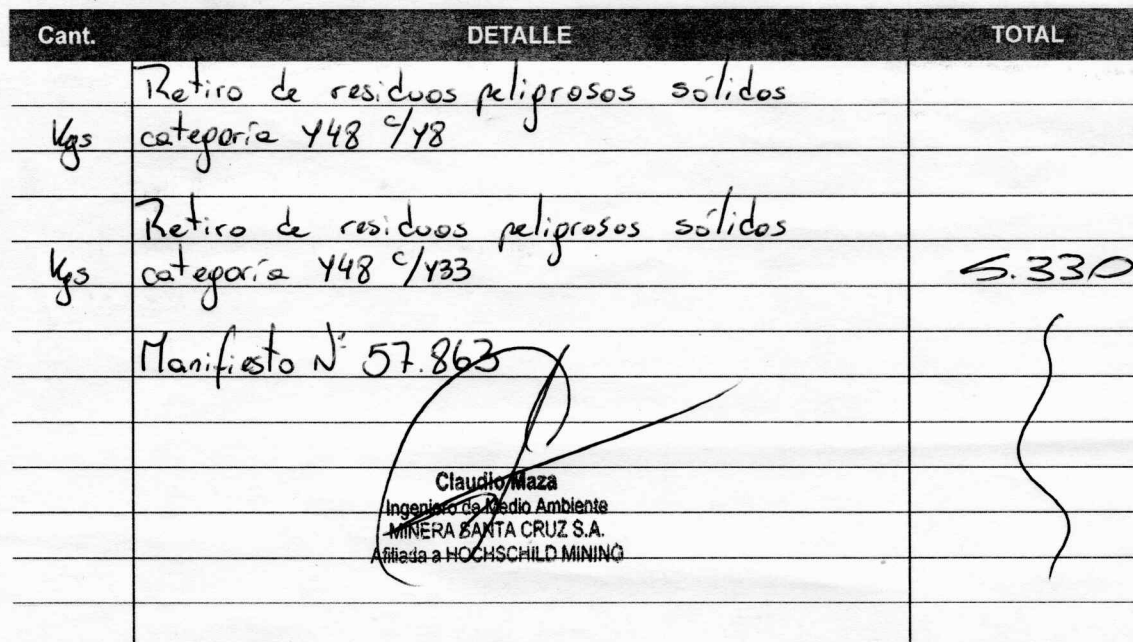 Cant. DETALLE TOTAL
Retiro de residuos peligrosos sólidos
Kgs categoría Y48 c/Y8
Retiro de residuos peligrosos sólidos
Kgs categoría Y48 c/Y33 5.330
Manifiesto N° 57.863
Claudio Maza
Ingeniero de Medio Ambiente
MINERA SANTA CRUZ S.A.
Afiliada a HOCHSCHILD MINING